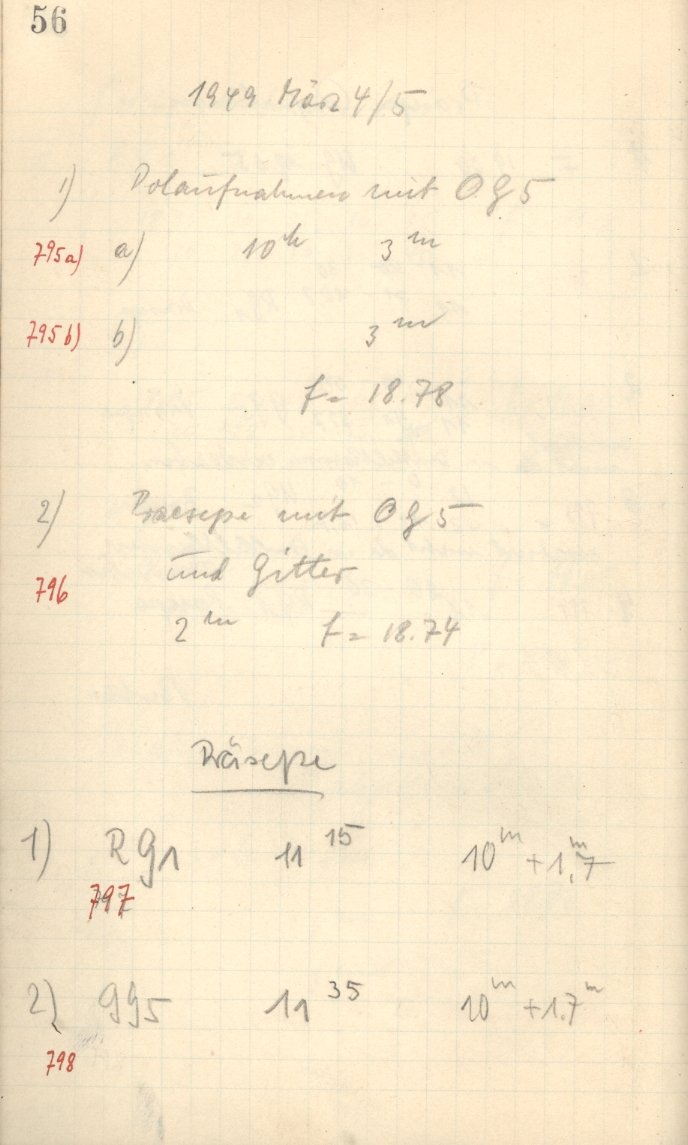 56
1949 März 4/5
1) Polaufnahmen mit OG5
795a) a) 10ʰ 3ᵐ
795b) b) 3ᵐ
f = 18.78
2) Praesepe mit OG5
796 und Gitter
2ᵐ f = 18.74
Präsepe
1) RG1 11¹⁵ 10ᵐ + 1.ᵐ7
797
2) GG5 11³⁵ 10ᵐ + 1.7ᵐ
798